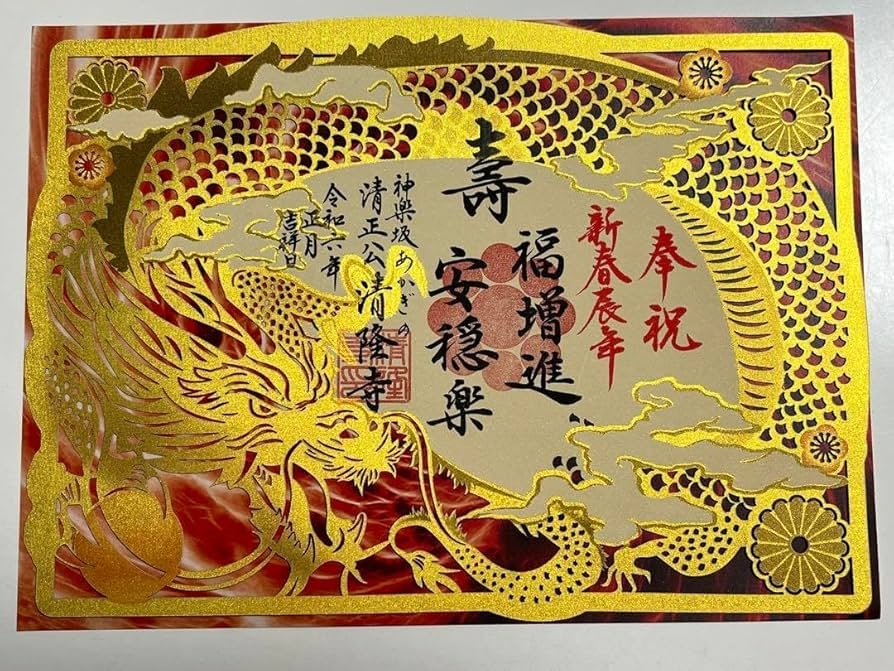 奉祝
新春辰年
壽
福増進
安穏楽
神楽坂あかぎの
清正公 清隆寺
令和六年
正月
吉祥日